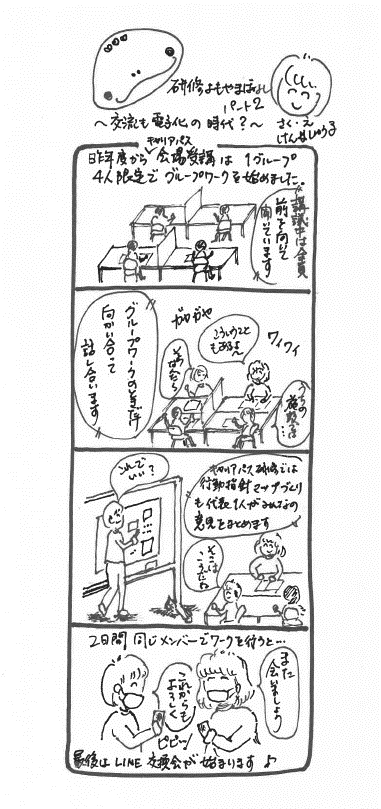 研修よもやまばなし
パート2
～交流も電子化の時代？～
さく・え
けんしゅう子
昨年度からキャリアパス会場受講は1グループ
4人限定でグループワークを始めました。
講義中は全員
前を向いて
聞いています
グループワークのときだけ
向かい合って
話し合います
ガヤガヤ
こういうこと
もあるよ～
ワイワイ
その場合だったら
うちの
施設では…
これで
いい？
キャリアパス研修では
行動指針マップづくり
も代表1人がみんなの
意見をまとめます
そこは
こうだね
2日間同じメンバーでワークを行うと…
また
会いましょう
これからも
よろしく
ピピッ
最後はLINE交換会が始まります♪